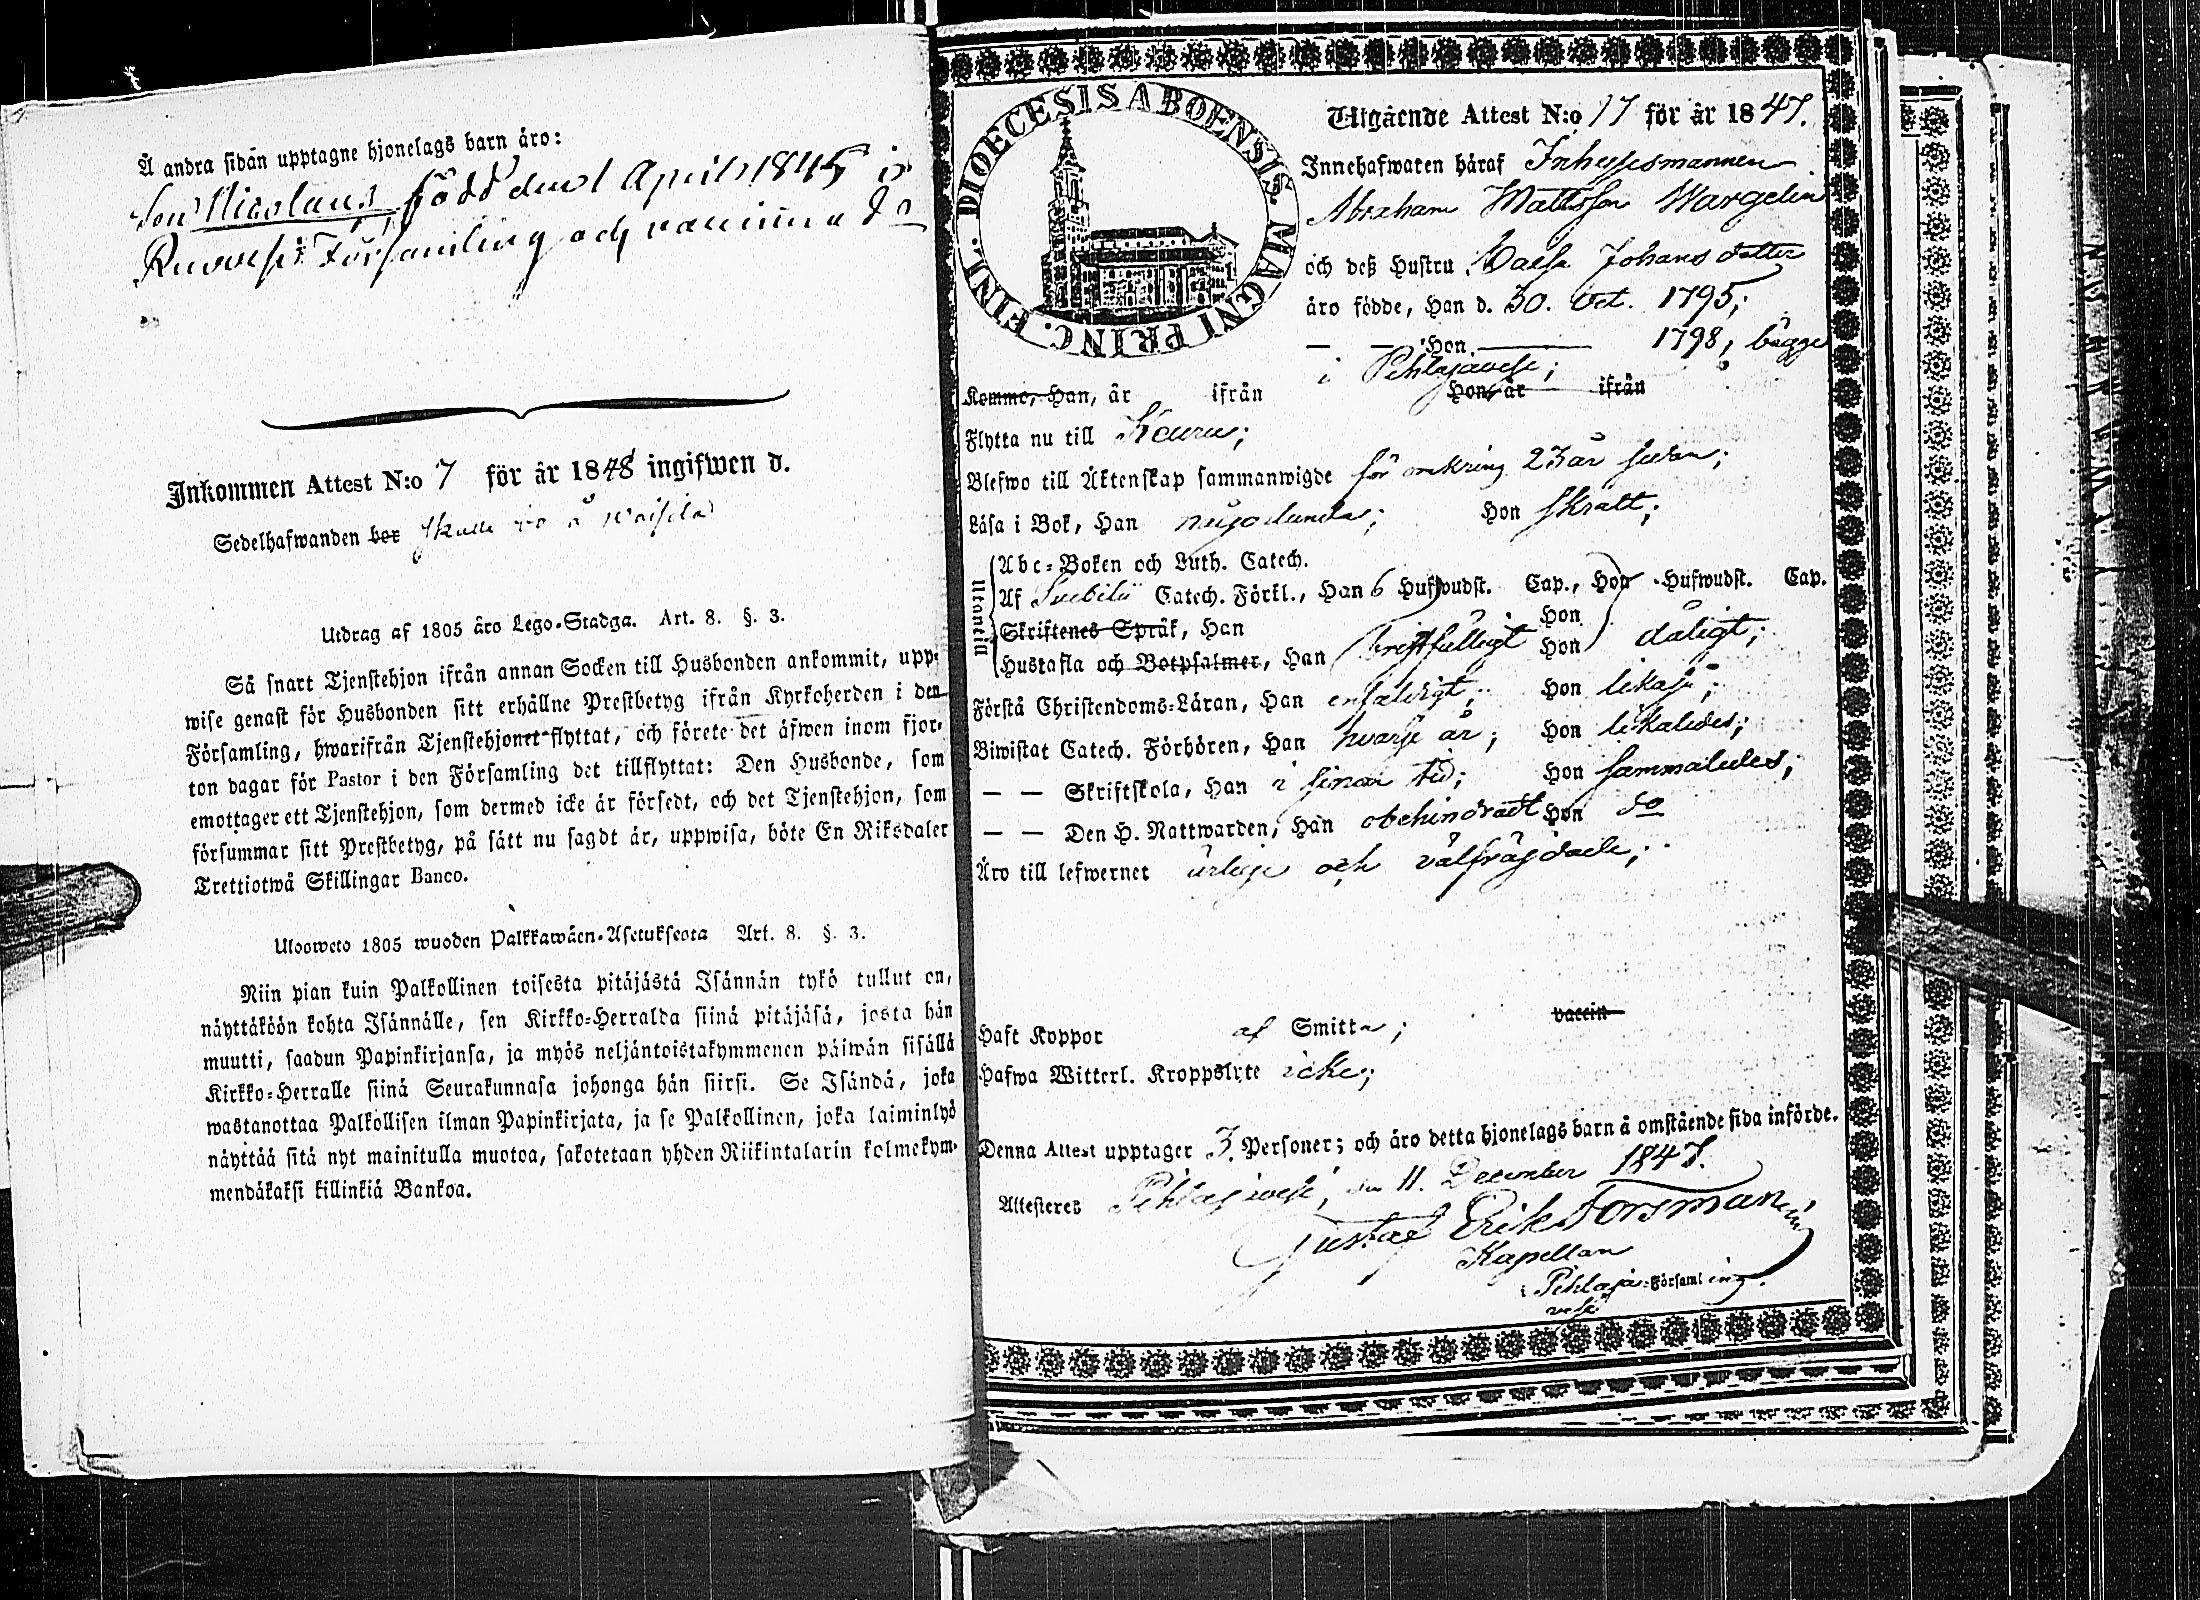 Å andra sidan upptagne hjonelags barn äro:
Son Nicolaus, född den 1 April 1845 i
Ruovesi Församling och vaccinn. do
Inkommen Attest N:o 7 för år 1848 ingifwen d.
Sedelhafwanden bor skulle bo å
Utdrag af 1805 års Lego-Stadga. Art. 8. §. 3.
Så snart Tjenstehjon ifrån annan Socken till Husbonden ankommit, upp-
wise genast för Husbonden sitt erhållne Prestbetyg ifrån Kyrkoherden i den
Församling, hwarifrån Tjenstehjonet flyttat, och förete det äfwen inom fjor-
ton dagar för Pastor i den Församling det tillflyttat: Den Husbonde, som
emottager ett Tjenstehjon, som dermed icke är försedt, och det Tjenstehjon, som
försummar sitt Prestbetyg, på sätt nu sagdt är, uppwisa, böte En Riksdaler
Trettiotwå Skillingar Banco.
Ulosweto 1805 wuoden Palkkawäen-Asetuksesta Art. 8. §. 3.
Niin pian kuin Palkollinen toisesta pitäjästä Isännän tykö tullut on,
näyttäköön kohta Isännälle, sen Kirkko-Herralda siinä pitäjäsä, josta hän
muutti, saadun Papinkirjansa, ja myös neljäntoistakymmenen päiwän sisällä
Kirkko-Herralle siinä Seurakunnasa johonga hän siirsi. Se Isändä, joka
wastanottaa Palkollisen ilman Papinkirjata, ja se Palkollinen, joka laiminlyö
näyttää sitä nyt mainitulla muotoa, sakotetaan yhden Riikintalarin kolmekym-
mendäkaksi killinkiä Bankoa.
DIOECESIS ABOENSIS. MAGNI PRINC. FINL.
Utgående Attest N:o 17 för år 1847.
Innehafwaren häraf Inhysesmannen
Abraham Mattsson Wargelin
och deß Hustru Caisa Johansdotter
äro födde, Han d. 30. Oct. 1795;
— — Hon 1798, bägge
i Pihlajavesi;
Komme, Han, år ifrån Hon, år ifrån
Flytta nu till Keuru;
Blefwo till Äktenskap sammanwigde för omkring 23 år sedan;
Läsa i Bok, Han någorlunda; Hon skralt;
Utantill
Abc-Boken och Luth. Catech.
Af Svebilii Catech. Förkl., Han 6 Hufwudst. Cap., Hon Hufwudst. Cap.
Skriftenes Språk, Han Hon
Hustafla och Botpsalmer, Han bristfälligt Hon dåligt;
Förstå Christendoms-Läran, Han enfaldigt; Hon likaså;
Biwistat Catech. Förhören, Han hvarje år; Hon likaledes;
— — Skriftskola, Han i sinom tid; Hon sammaledes;
— — Den H. Nattwarden, Han obehindradt Hon do
Äro till lefwernet ärlige och välfräjdade;
Haft Koppor af Smitta; vaccin
Hafwa Witterl. Kroppslyte icke;
Denna Attest upptager 3. Personer; och äro detta hjonelags barn å omstående sida införde.
Attesteres Pihlajavesi, den 11. December 1847.
Gustaf Erik Forsman
Kapellan
i Pihlaja-Församling.
vesi